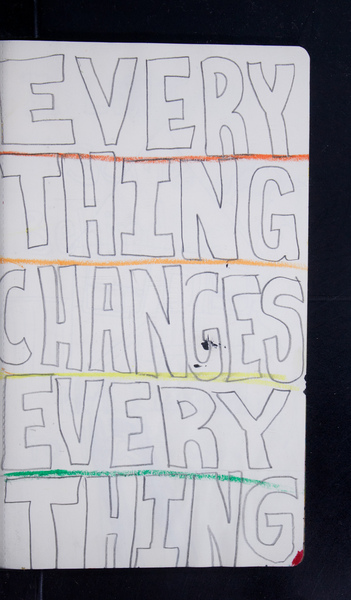 EVERY
THING
CHANGES
EVERY
THING